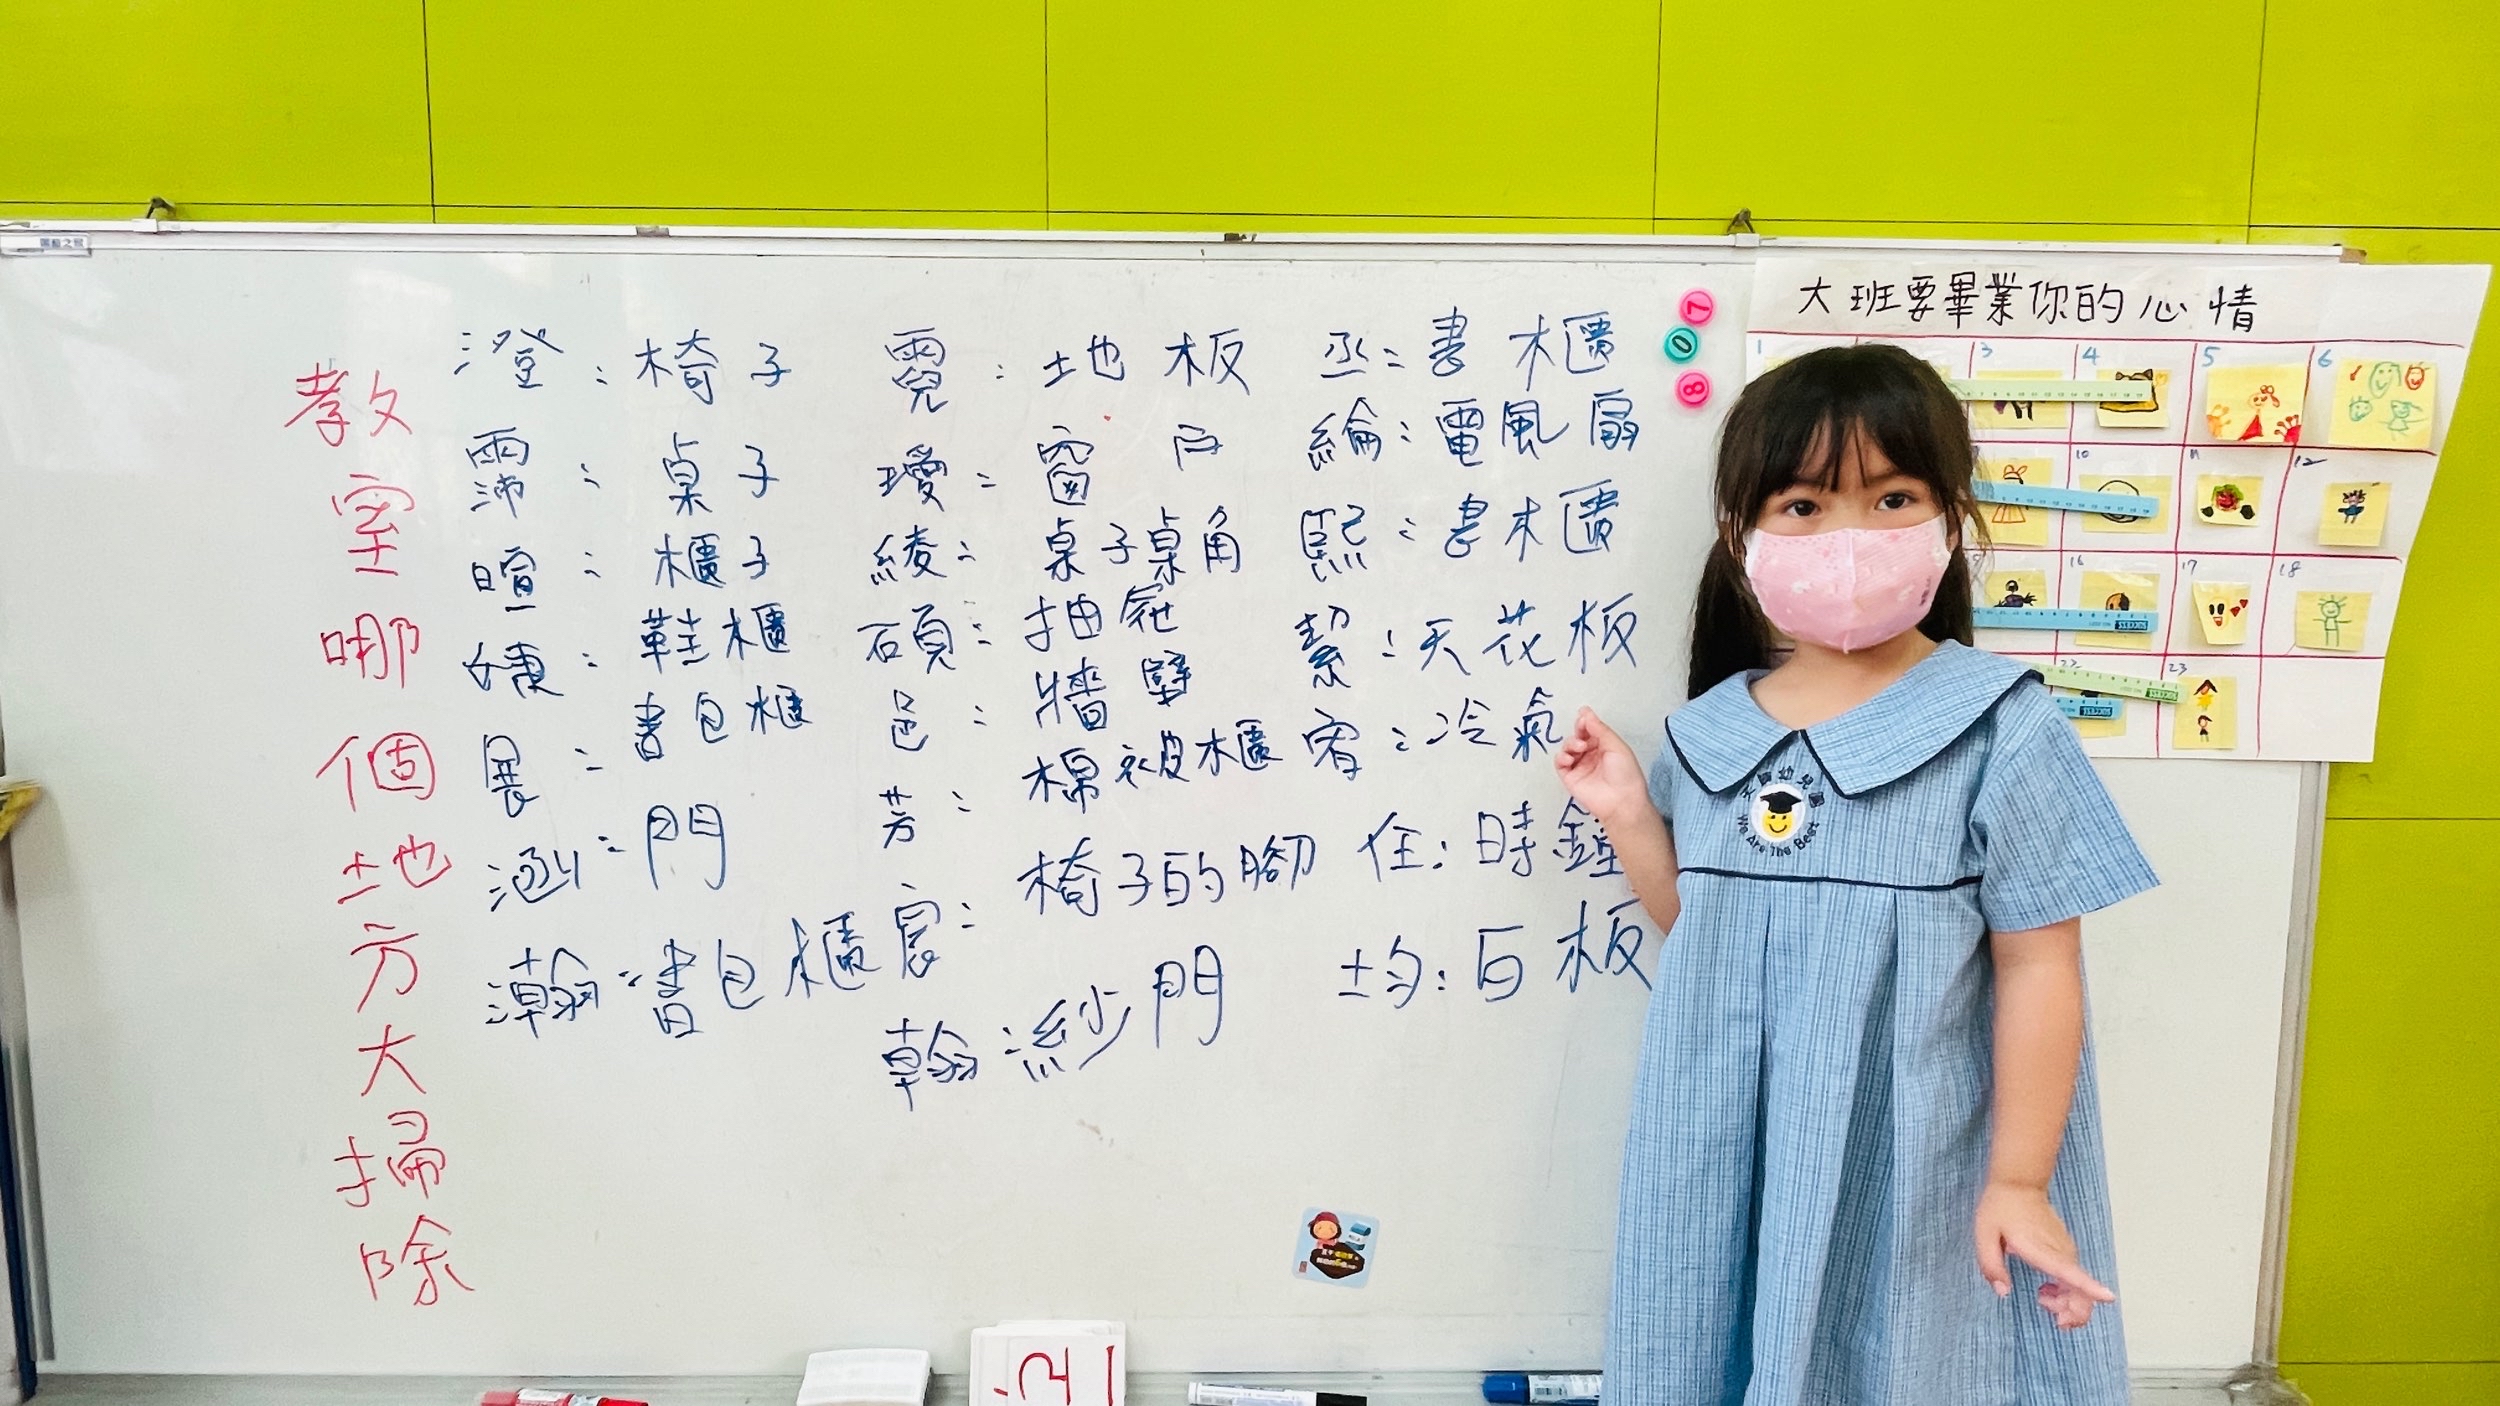 教室哪個地方大掃除
澄:椅子
霈:桌子
暄:櫃子
婕:鞋櫃
展:書包櫃
涵:門
瀚:書包櫃
霓:地板
璦:窗戶
綾:桌子桌角
碩:抽屜
邑:牆壁
芳:棉被櫃
宸:椅子的腳
翰:紗門
丞:書櫃
綸:電風扇
熙:書櫃
絜:天花板
宥:冷氣
住:時鐘
均:白板
7
0
8
大班要畢業你的心情
1
3
4
5
6
10
11
12
16
17
18
22
23
We Are The Best